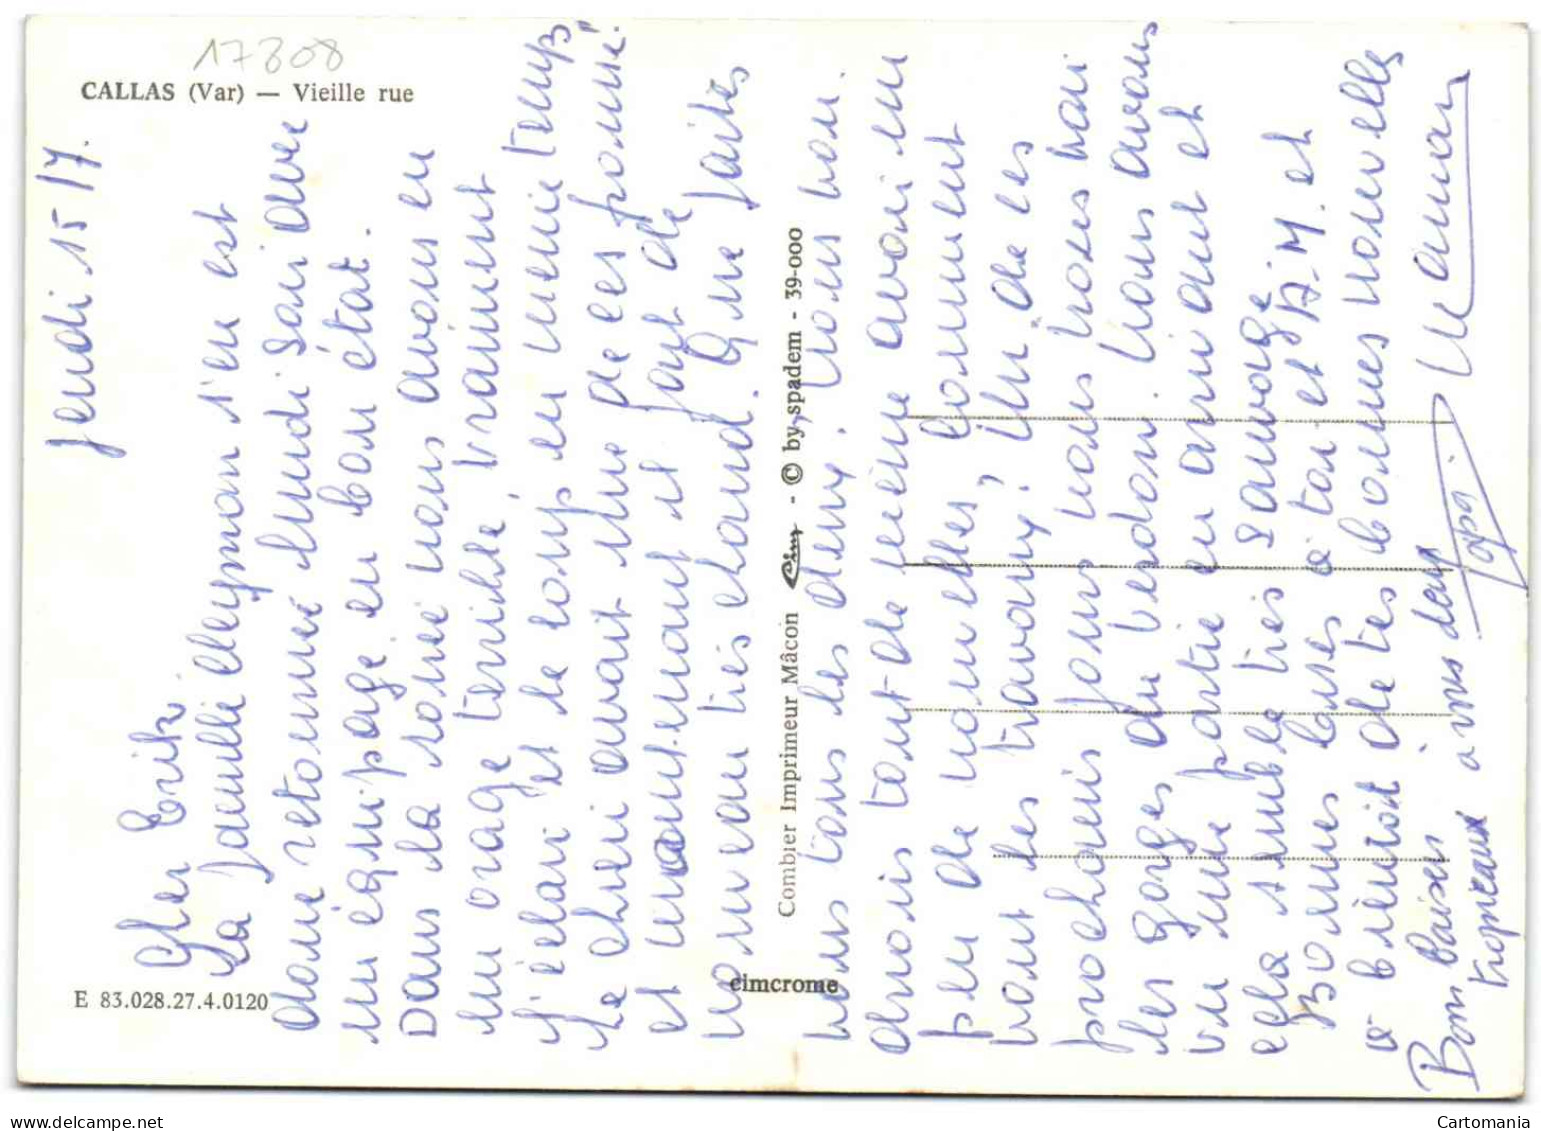 17808
CALLAS (Var) — Vieille rue
Jeudi 15/7.
Cher Erik.
La famille Cleyman s'en est
donc retournée lundi soir avec
un équipage en bon état.
Dans la soirée nous avons eu
un orage terrible, vraiment
J'étais et le long en meme temps
Le chien avait une de ces
et maintenant il fait de
nouveau très chaud. Que faites
vous tous les deux. Nous non.
Combier Imprimeur Mâcon - © by spadem - 39-000
cimcrome
E 83.028.27.4.0120
tout de même avoir un
peu de nouvelles, comment
vont les travaux? Un de ces
prochains jours nous irons voir
les gorges du Verdon. Nous avons
vu une partie en arrivant et
cela semble très sauvage
Bonnes bises à toi et A-M. et
à bientôt de tes bonnes nouvelles
Bons baisers à vous deux
tropicaux
Papa
Maman
Cartomania